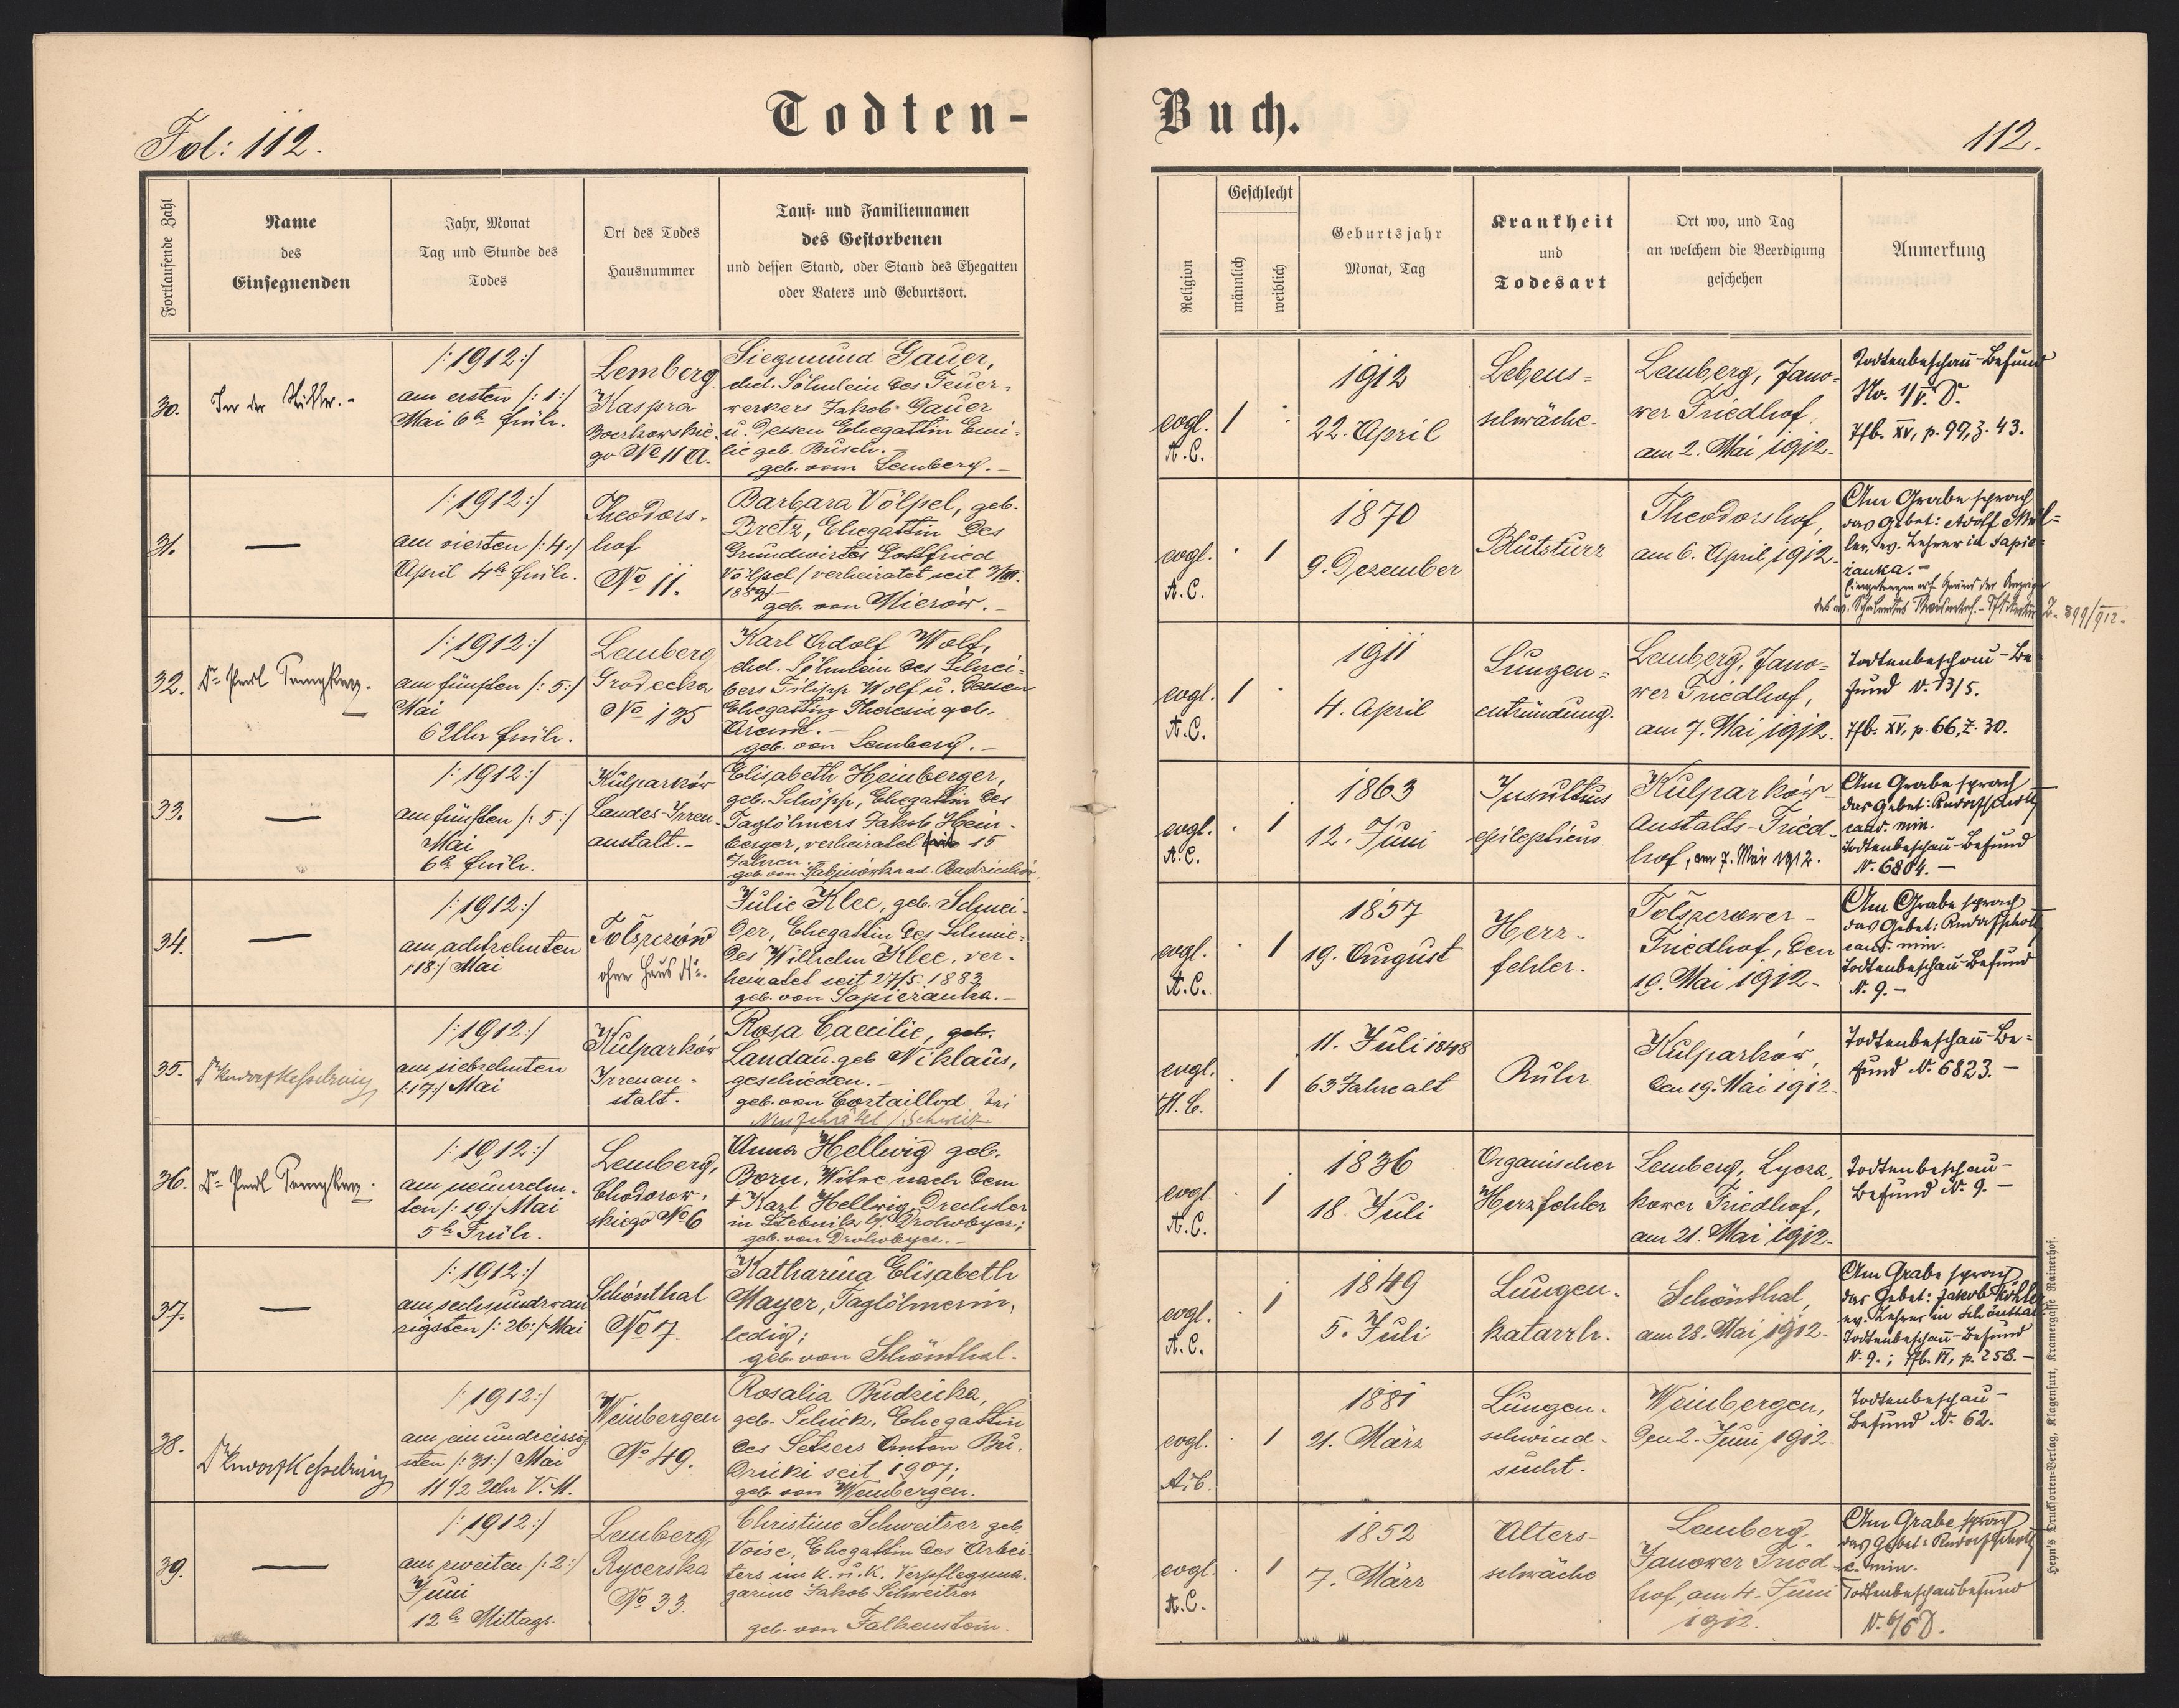 Todten-
Buch.
Fol: 112.
112.
Fortlaufende Zahl
Name
des
Einsegnenden
Jahr, Monat
Tag und Stunde des
Todes
Ort des Todes
Hausnummer
Tauf- und Familiennamen
des Gestorbenen
und dessen Stand, oder Stand des Ehegatten
oder Vaters und Geburtsort.
Religion
Geschlecht
männlich
weiblich
Geburtsjahr
Monat, Tag
Krankheit
und
Todesart
Ort wo, und Tag
an welchem die Beerdigung
geschehen
Anmerkung
30.
/:1912:/
am ersten /:1:/
Mai 6h früh.
Lemberg
Kaspra
Boczkowskie-
go No 11 A.
Siegmund Gauer,
ehel. Söhnlein des Feuer-
werkers Jakob Gauer
u. dessen Ehegattin Emi-
lie geb. Busch.
geb. vom Lemberg.-
evgl.
A.C.
1
1912
22. April
Lebens-
schwäche.
Lemberg, Jano-
wer Friedhof,
am 2. Mai 1912.
Todtenbeschau-Befund
No. 1/V. D.
Tfb. XV, p. 99, z. 43.
31.
—
/:1912:/
am vierten /:4:/
April 4h früh.
Theodors-
hof
No 11.
Barbara Völpel, geb.
Bretz, Ehegattin des
Grundwirten Gottfried
Völpel /verheiratet seit 3/III.
1889/-
geb. von Mierów.-
evgl.
A.C.
1
1870
9. Dezember
Blutsturz
Theodorshof,
am 6. April 1912.
Am Grabe sprach
das Gebet: Adolf Mül-
ler, ev. Lehrer in Sapie-
zanka.-
Z. 899/912.
32.
/:1912:/
am fünften /:5:/
Mai
6 Uhr früh.
Lemberg
Grodecka
No 135
Karl Adolf Wolf,
ehel. Söhnlein des Schrei-
bers Filipp Wolf u. dessen
Ehegattin Theresia geb.
geb. von Lemberg.-
evgl.
A.C.
1
1911
4. April
Lungen-
entzündung.
Lemberg, Jano-
wer Friedhof,
am 7. Mai 1912.
Todtenbeschau-Be
fund N. 13/5.
Tfb. XV, p. 66, Z. 30.
33.
—
/:1912:/
am fünften /:5:/
Mai
6h früh.
Kulparków
Landes-Irren-
anstalt.-
Elisabeth Heinberger,
geb. Schöpp, Ehegattin des
Taglöhners Jakob Hein-
berger, verheiratet seit 15
Jahren.
evgl.
A.C.
1
1863
12. Juni
Insultus
epilepticus.
Kulparków
Anstalts-Fried-
hof, am 7. Mai 1912.
Am Grabe sprach
das Gebet: Rudolf Scholtz
cand. min.
Todtenbeschau-Befund
N. 6804.-
34.
—
/:1912:/
am achtzehnten
/:18:/ Mai
Tołszczów
ohne Haus No.
Julie Klee, geb. Schnei-
der, Ehegattin des Schmie-
des Wilhelm Klee, ver-
heiratet seit 27/5. 1883
geb. von Sapiezanka.-
evgl.
A.C.
1
1857
19. August
Herz-
fehler.
Tołszczower-
Friedhof, den
19. Mai 1912-
Am Grabe sprach
das Gebet: Rudolf Scholtz
cand. min.
Todtenbeschau-Befund
N. 9.-
35.
Dr Rudolf Kesselring
/:1912:/
am siebzehnten
/:17:/ Mai
Kulparków
Irrenan-
stalt.
Rosa Caecilie, geb.
Landau geb Niklaus,
geschieden.-
geb. von Cortaillod bei
Neufchâtel / Schweiz
evgl.
H.C.
1
11. Juli 1848
63 Jahre alt
Ruhr
Kulparków,
den 19. Mai 1912.
Todtenbeschau-Be-
fund N. 6823.-
36.
/:1912:/
am neunzehn-
ten /:19:/ Mai
5h Früh.
Lemberg,
Chodorow-
skiego No 6
Anna Hellwig geb.
Born, Witwe nach dem
† Karl Hellwig Drechsler
in Stebnik b/ Drohobycz;
geb. von Drohobycz.-
evgl.
A.C.
1
1836
18. Juli
Organischer
Herzfehler
Lemberg, Lycza-
kower Friedhof,
am 21. Mai 1912.
Todtenbeschau-
Befund N. 9.-
37.
—
/:1912:/
am sechsundzwan
zigsten /:26:/ Mai
Schönthal
No 7.
Katharina Elisabeth
Mayer, Taglöhnerin,
ledig;
geb. von Schönthal.
evgl.
A.C.
1
1849
5. Juli
Lungen-
katarrh.
Schönthal,
am 28. Mai 1912.
Am Grabe sprach
das Gebet: Jakob Köhler
ev. Lehrer in Schönthal
Todtenbeschau-Befund
N. 9.; Tfb. VI, p. 258.-
38.
Dr Rudolf Kesselring
/:1912:/
am einunddreissig
sten /:31:/ Mai
11 1/2 Uhr V.M.
Weinbergen
No 49.
Rosalia Budzicka,
geb. Schick, Ehegattin
des Setzers Anton Bu-
dzicki seit 1907;
geb. von Weinbergen.
evgl.
A.C.
1
1881
21. März
Lungen-
schwind-
sucht.
Weinbergen,
den 2. Juni 1912.
Todtenbeschau-
Befund N. 62.
39.
—
/:1912:/
am zweiten /:2:/
Juni
12h Mittags.
Lemberg,
Rycerska
No 33.
Christine Schweitzer geb.
Voise, Ehegattin des Arbei-
ters im K.u.K. Verpflegsma-
gazine Jakob Schweitzer
geb. von Falkenstein.
evgl.
A.C.
1
1852
7. März
Alters-
schwäche
Lemberg,
Janower Fried-
hof, am 4. Juni
1912.
Am Grabe sprach
das Gebet: Rudolf Scholtz
c. min.
Todtenbeschaubefund
N. 6/6 D.
Heyn's Drucksorten-Verlag, Klagenfurt, Kramergasse Rainerhof.